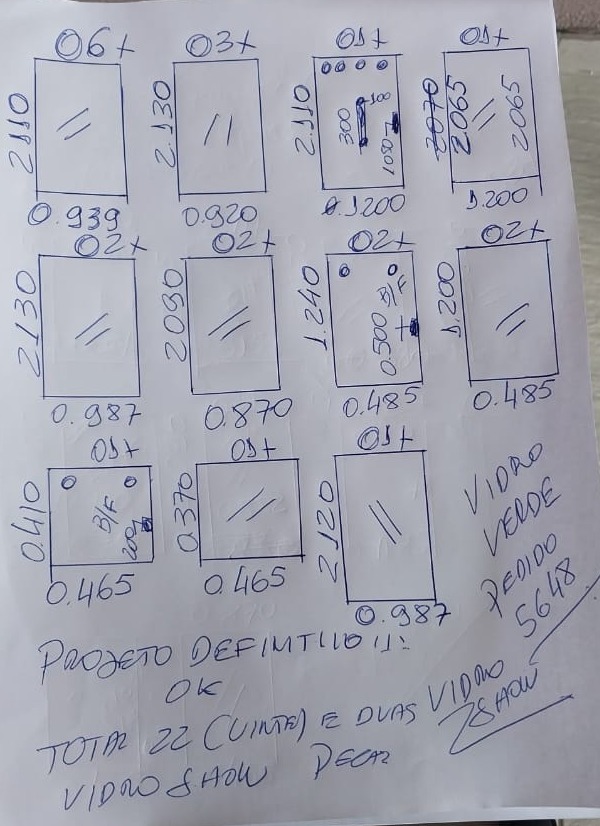 06+ 03+ 01+ 01+
2110 2.130 2.110 300 100 1050 2070 2065 2065
0.939 0.920 1200 1.200
02+ 02+ 02+ 02+
2130 2090 1.240 0.500 B/F 1.200
0.987 0.870 0.485 0.485
01+ 01+ 01+
0.410 B/F 200 0.370 2.120
0.465 0.465 0.987
VIDRO
VERDE
PEDIDO
5648
PROJETO DEFINTIVO !!
OK
TOTAL 22 (VINTE) E DUAS VIDRO SHOW
VIDRO SHOW PECAS